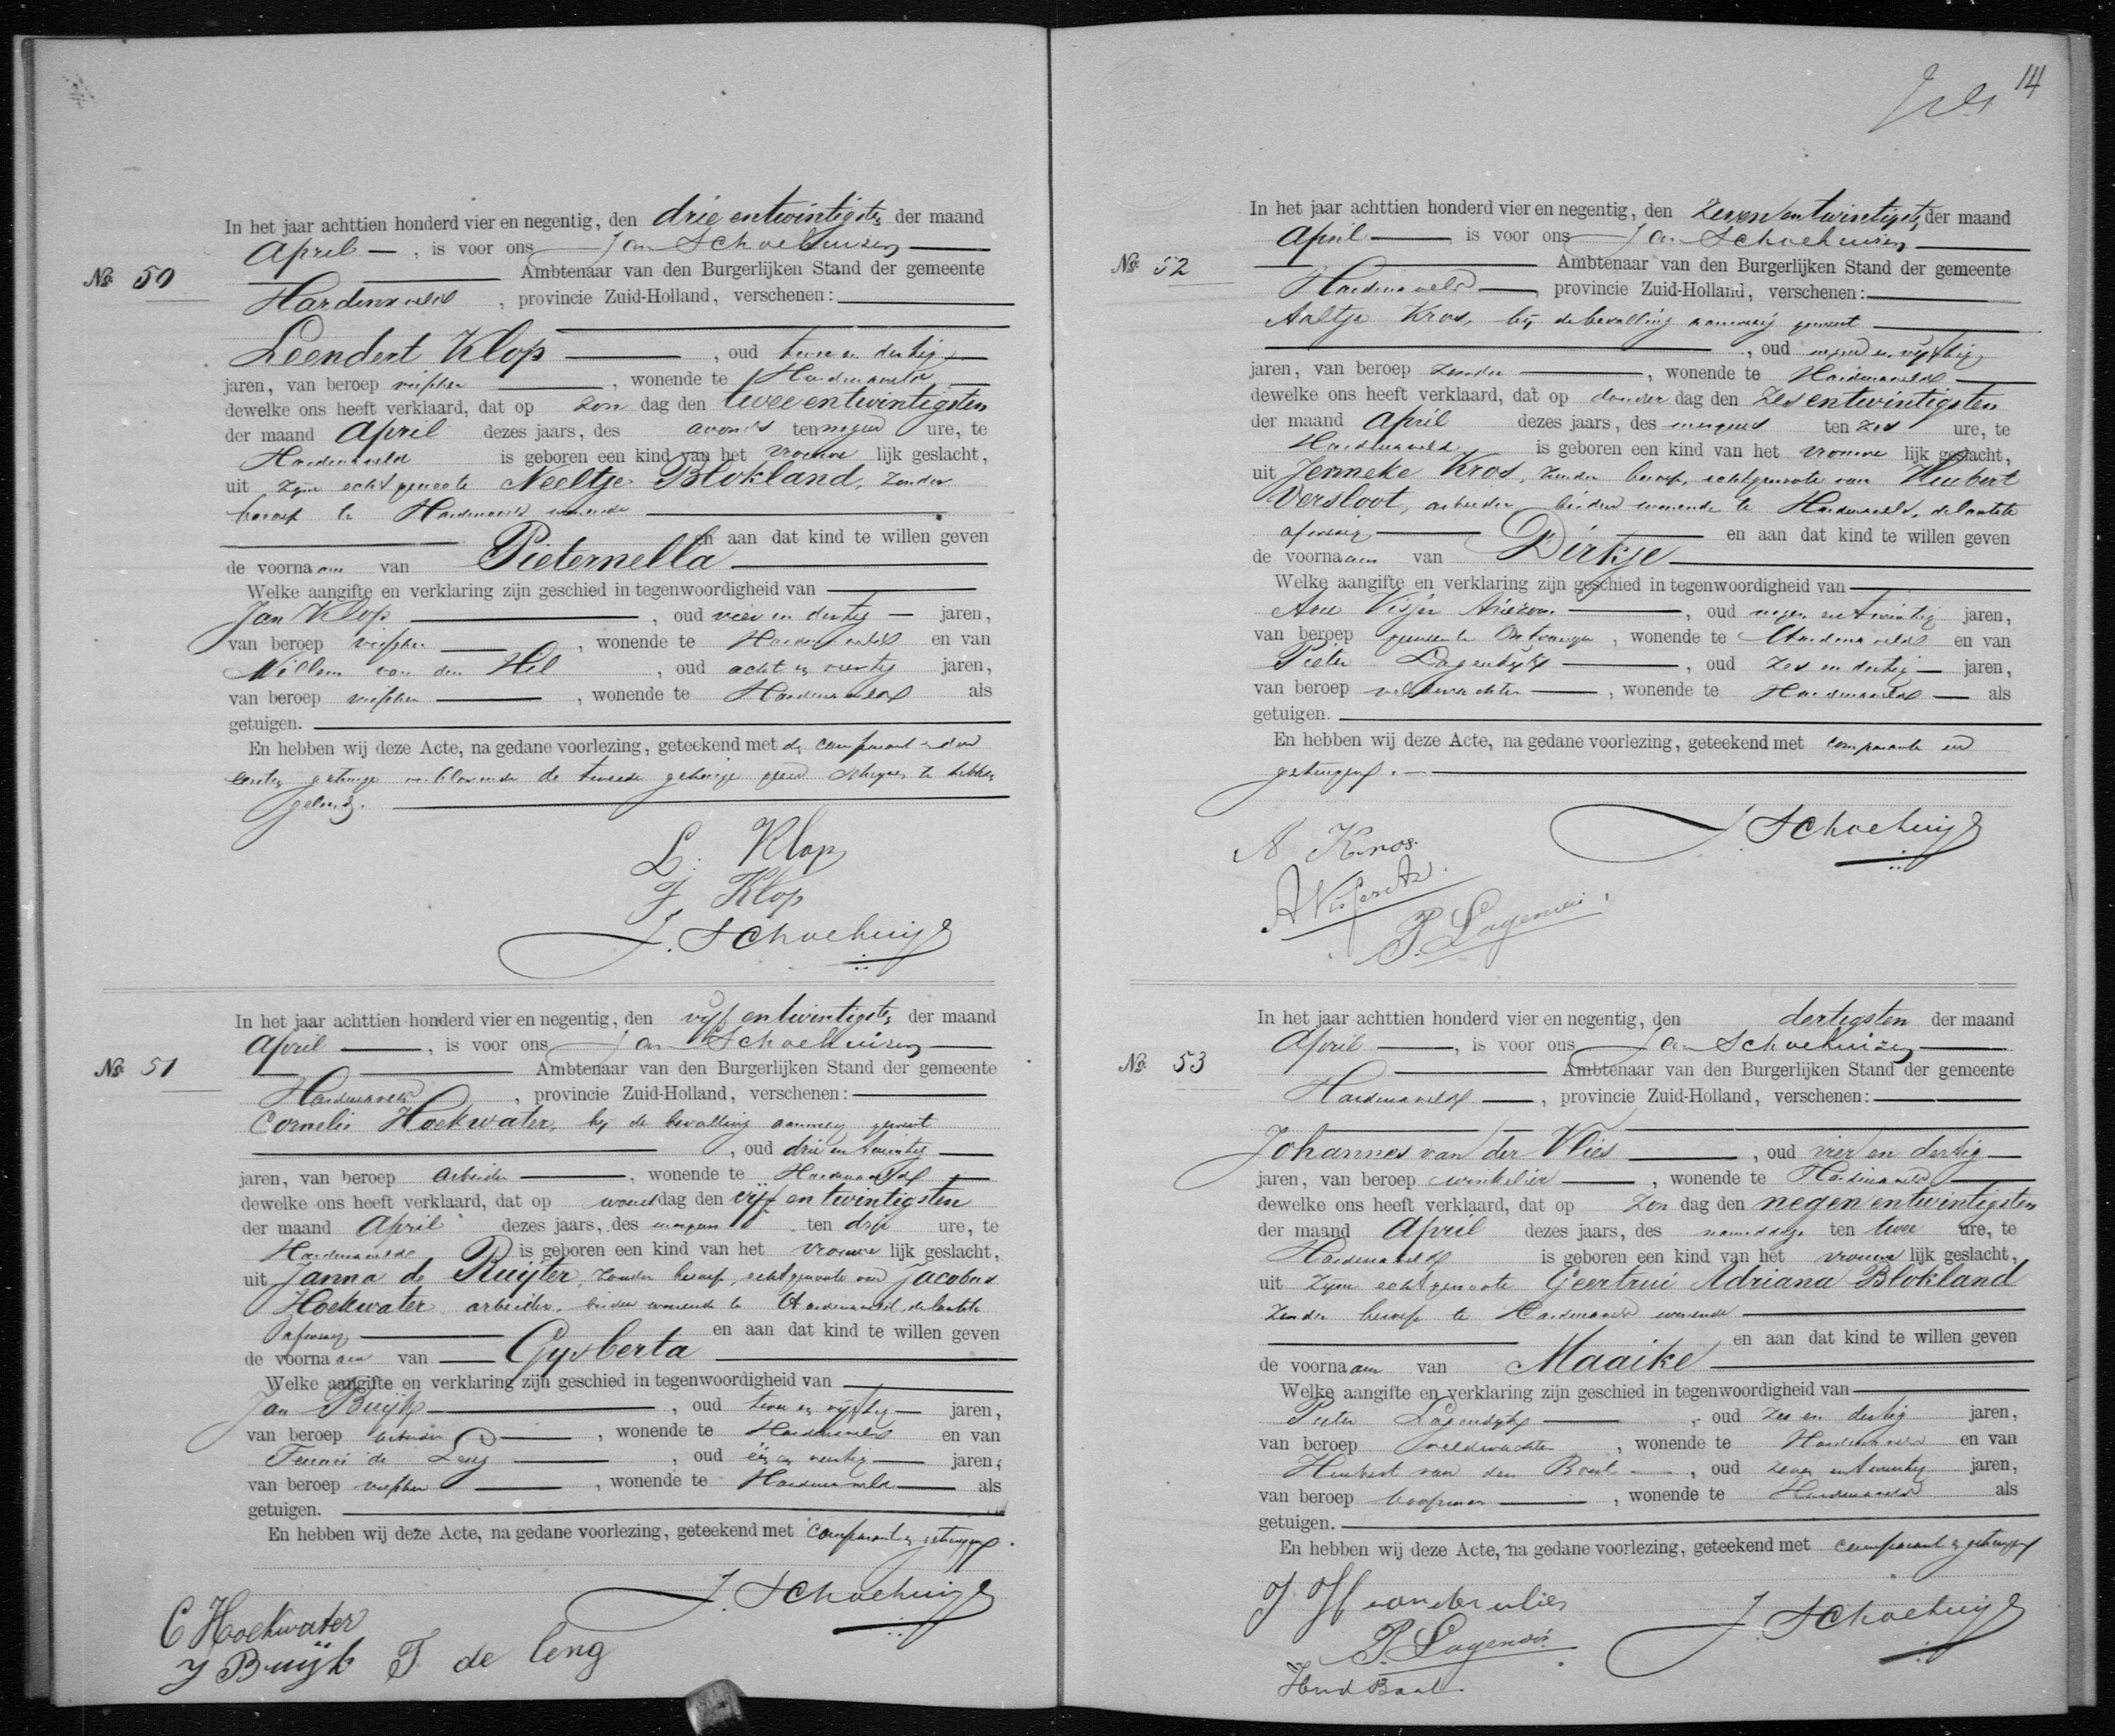 No 50
In het jaar achttien honderd vier en negentig, den drie en twintigsten der maand
April, is voor ons Jan Schoehuizen
Ambtenaar van den Burgerlijken Stand der gemeente
Hardinxveld, provincie Zuid-Holland, verschenen:
Leendert Klop, oud twee en dertig
jaren, van beroep visscher, wonende te Hardinxveld
dewelke ons heeft verklaard, dat op zon dag den twee en twintigsten
der maand April dezes jaars, des avonds ten negen ure, te
Hardinxveld is geboren een kind van het vrouwe lijk geslacht,
uit zijne echtgenoote Neeltje Blokland, zonder
beroep te Hardinxveld wonende
en aan dat kind te willen geven
de voornaam van Pieternella
Welke aangifte en verklaring zijn geschied in tegenwoordigheid van
Jan Klop, oud vier en dertig jaren,
van beroep visscher, wonende te Hardinxveld en van
Willem van den Hil, oud acht en veertig jaren,
van beroep visscher, wonende te Hardinxveld als
getuigen.
En hebben wij deze Acte, na gedane voorlezing, geteekend met de comparant en den
eersten getuige verklarende de tweede getuige geen schrijven te hebben
geleerd.
L. Klop
J Klop
J. Schoehuizen
No 51
In het jaar achttien honderd vier en negentig, den vijf en twintigsten der maand
April, is voor ons Jan Schoehuizen
Ambtenaar van den Burgerlijken Stand der gemeente
Hardinxveld, provincie Zuid-Holland, verschenen:
Cornelis Hoekwater, bij de bevalling aanwezig geweest
, oud drie en twintig
jaren, van beroep arbeider, wonende te Hardinxveld
dewelke ons heeft verklaard, dat op woensdag den vijf en twintigsten
der maand April dezes jaars, des morgens ten drie ure, te
Hardinxveld is geboren een kind van het vrouwe lijk geslacht,
uit Janna de Ruijter, zonder beroep, echtgenoote van Jacobus
Hoekwater arbeider, beiden wonende te Hardinxveld, de laatste
afwezig en aan dat kind te willen geven
de voornaam van Gijsberta
Welke aangifte en verklaring zijn geschied in tegenwoordigheid van
Jan Buijk, oud twee en vijftig jaren,
van beroep arbeider, wonende te Hardinxveld en van
de Leng, oud één en veertig jaren,
van beroep visscher, wonende te Hardinxveld als
getuigen.
En hebben wij deze Acte, na gedane voorlezing, geteekend met comparant en getuigen.
J. Schoehuizen
C Hoekwater
J Buijk T de leng
14
No 52
In het jaar achttien honderd vier en negentig, den zeven en twintigsten der maand
April is voor ons Jan Schoehuizen
Ambtenaar van den Burgerlijken Stand der gemeente
Hardinxveld, provincie Zuid-Holland, verschenen:
Aaltje Kros, bij de bevalling aanwezig geweest
, oud negen en vijftig
jaren, van beroep zonder, wonende te Hardinxveld
dewelke ons heeft verklaard, dat op donder dag den zes en twintigsten
der maand April dezes jaars, des morgens ten zes ure, te
Hardinxveld is geboren een kind van het vrouwe lijk geslacht,
uit Jenneke Kros, zonder beroep, echtgenoote van Huibert
Versloot, arbeider beiden wonende te Hardinxveld, de laatste
afwezig en aan dat kind te willen geven
de voornaam van Dirkje
Welke aangifte en verklaring zijn geschied in tegenwoordigheid van
Arie Visser Ariezoon, oud negen en twintig jaren,
van beroep gemeente Ontvanger, wonende te Hardinxveld en van
Pieter Lagendijk, oud zes en dertig jaren,
van beroep veldwachter, wonende te Hardinxveld als
getuigen.
En hebben wij deze Acte, na gedane voorlezing, geteekend met comparante en
getuigen.
J. Schoehuizen
A Kros.
A Visser Az.
P. Lagendijk
No 53
In het jaar achttien honderd vier en negentig, den dertigsten der maand
April, is voor ons Jan Schoehuizen
Ambtenaar van den Burgerlijken Stand der gemeente
Hardinxveld, provincie Zuid-Holland, verschenen:
Johannes van der Vlies, oud vier en dertig
jaren, van beroep winkelier, wonende te Hardinxveld
dewelke ons heeft verklaard, dat op zon dag den negen en twintigsten
der maand April dezes jaars, des namiddags ten twee ure, te
Hardinxveld is geboren een kind van het vrouwe lijk geslacht,
uit zijne echtgenoote Geertrui Adriana Blokland
zonder beroep te Hardinxveld wonende
en aan dat kind te willen geven
de voornaam van Maaike
Welke aangifte en verklaring zijn geschied in tegenwoordigheid van
Pieter Lagendijk, oud zes en dertig jaren,
van beroep veldwachter, wonende te Hardinxveld en van
Huibert van den Bout, oud zeven en twintig jaren,
van beroep koopman, wonende te Hardinxveld als
getuigen.
En hebben wij deze Acte, na gedane voorlezing, geteekend met comparant en getuigen
J H van der vlies
P. Lagendijk
J. Schoehuizen